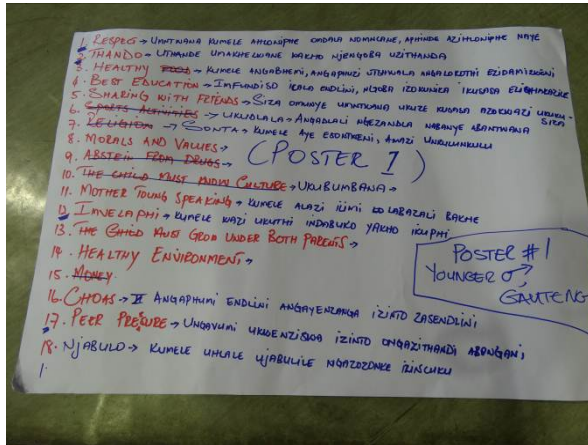 1. RESPEC → UMNTWANA KUMELE AHLONIPHE OMDALA NOMNCANE, APHINDE AZIHLONIPHE NAYE
2. THANDO → UTHANDE UMAKHELWANE WAKHO NJENGOBA UZITHANDA
3. HEALTHY FOOD → KUMELE ANGABHEMI, ANGAPHUZI UTSHWALA ANGALOKOTHI EZIDAMIZWENI
4. BEST EDUCATION → IMFUNDISO ICALA ENDLINI, NGOBA IZOKUNIKA IKUSASA ELIQHAKAZILE
5. SHARING WITH FRIENDS → SIZA OMUNYE UMNTWANA UKUZE KUSASA AZOKWAZI UKUKU-SIZA
6. SPORTS ACTIVITIES → UKUDLALA → ANGADLALI NGEZANDLA NABANYE ABANTWANA
7. RELIGION → SONTA → KUMELE AYE ESONTWENI, AWAZI UNKULUNKULU
8. MORALS AND VALUES →
(POSTER 1)
9. ABSTEIN FROM DRUGS →
10. THE CHILD MUST KNOW CULTURE → UKUBUMBANA →
11. MOTHER TOUNG SPEAKING → KUMELE ALAZI ILIMI LABAZALI BAKHE
12. IMVELAPHI → KUMELE WAZI UKUTHI INDABUKO YAKHO IKUPHI
13. THE CHILD MUST GROW UNDER BOTH PARENTS →
14. HEALTHY ENVIRONMENT →
15. MONEY
POSTER #1
YOUNGER ♂
GAUTENG
16. CHOAS → ANGAPHUMI ENDLINI ANGAYENZANGA IZINTO ZASENDLINI
17. PEER PRESURE → UNGAVUMI UKWENZISWA IZINTO ONGAZITHANDI ABANGANI
18. NJABULO → KUMELE UHLALE UJABULILE NGAZOZONKE IZINSUKU